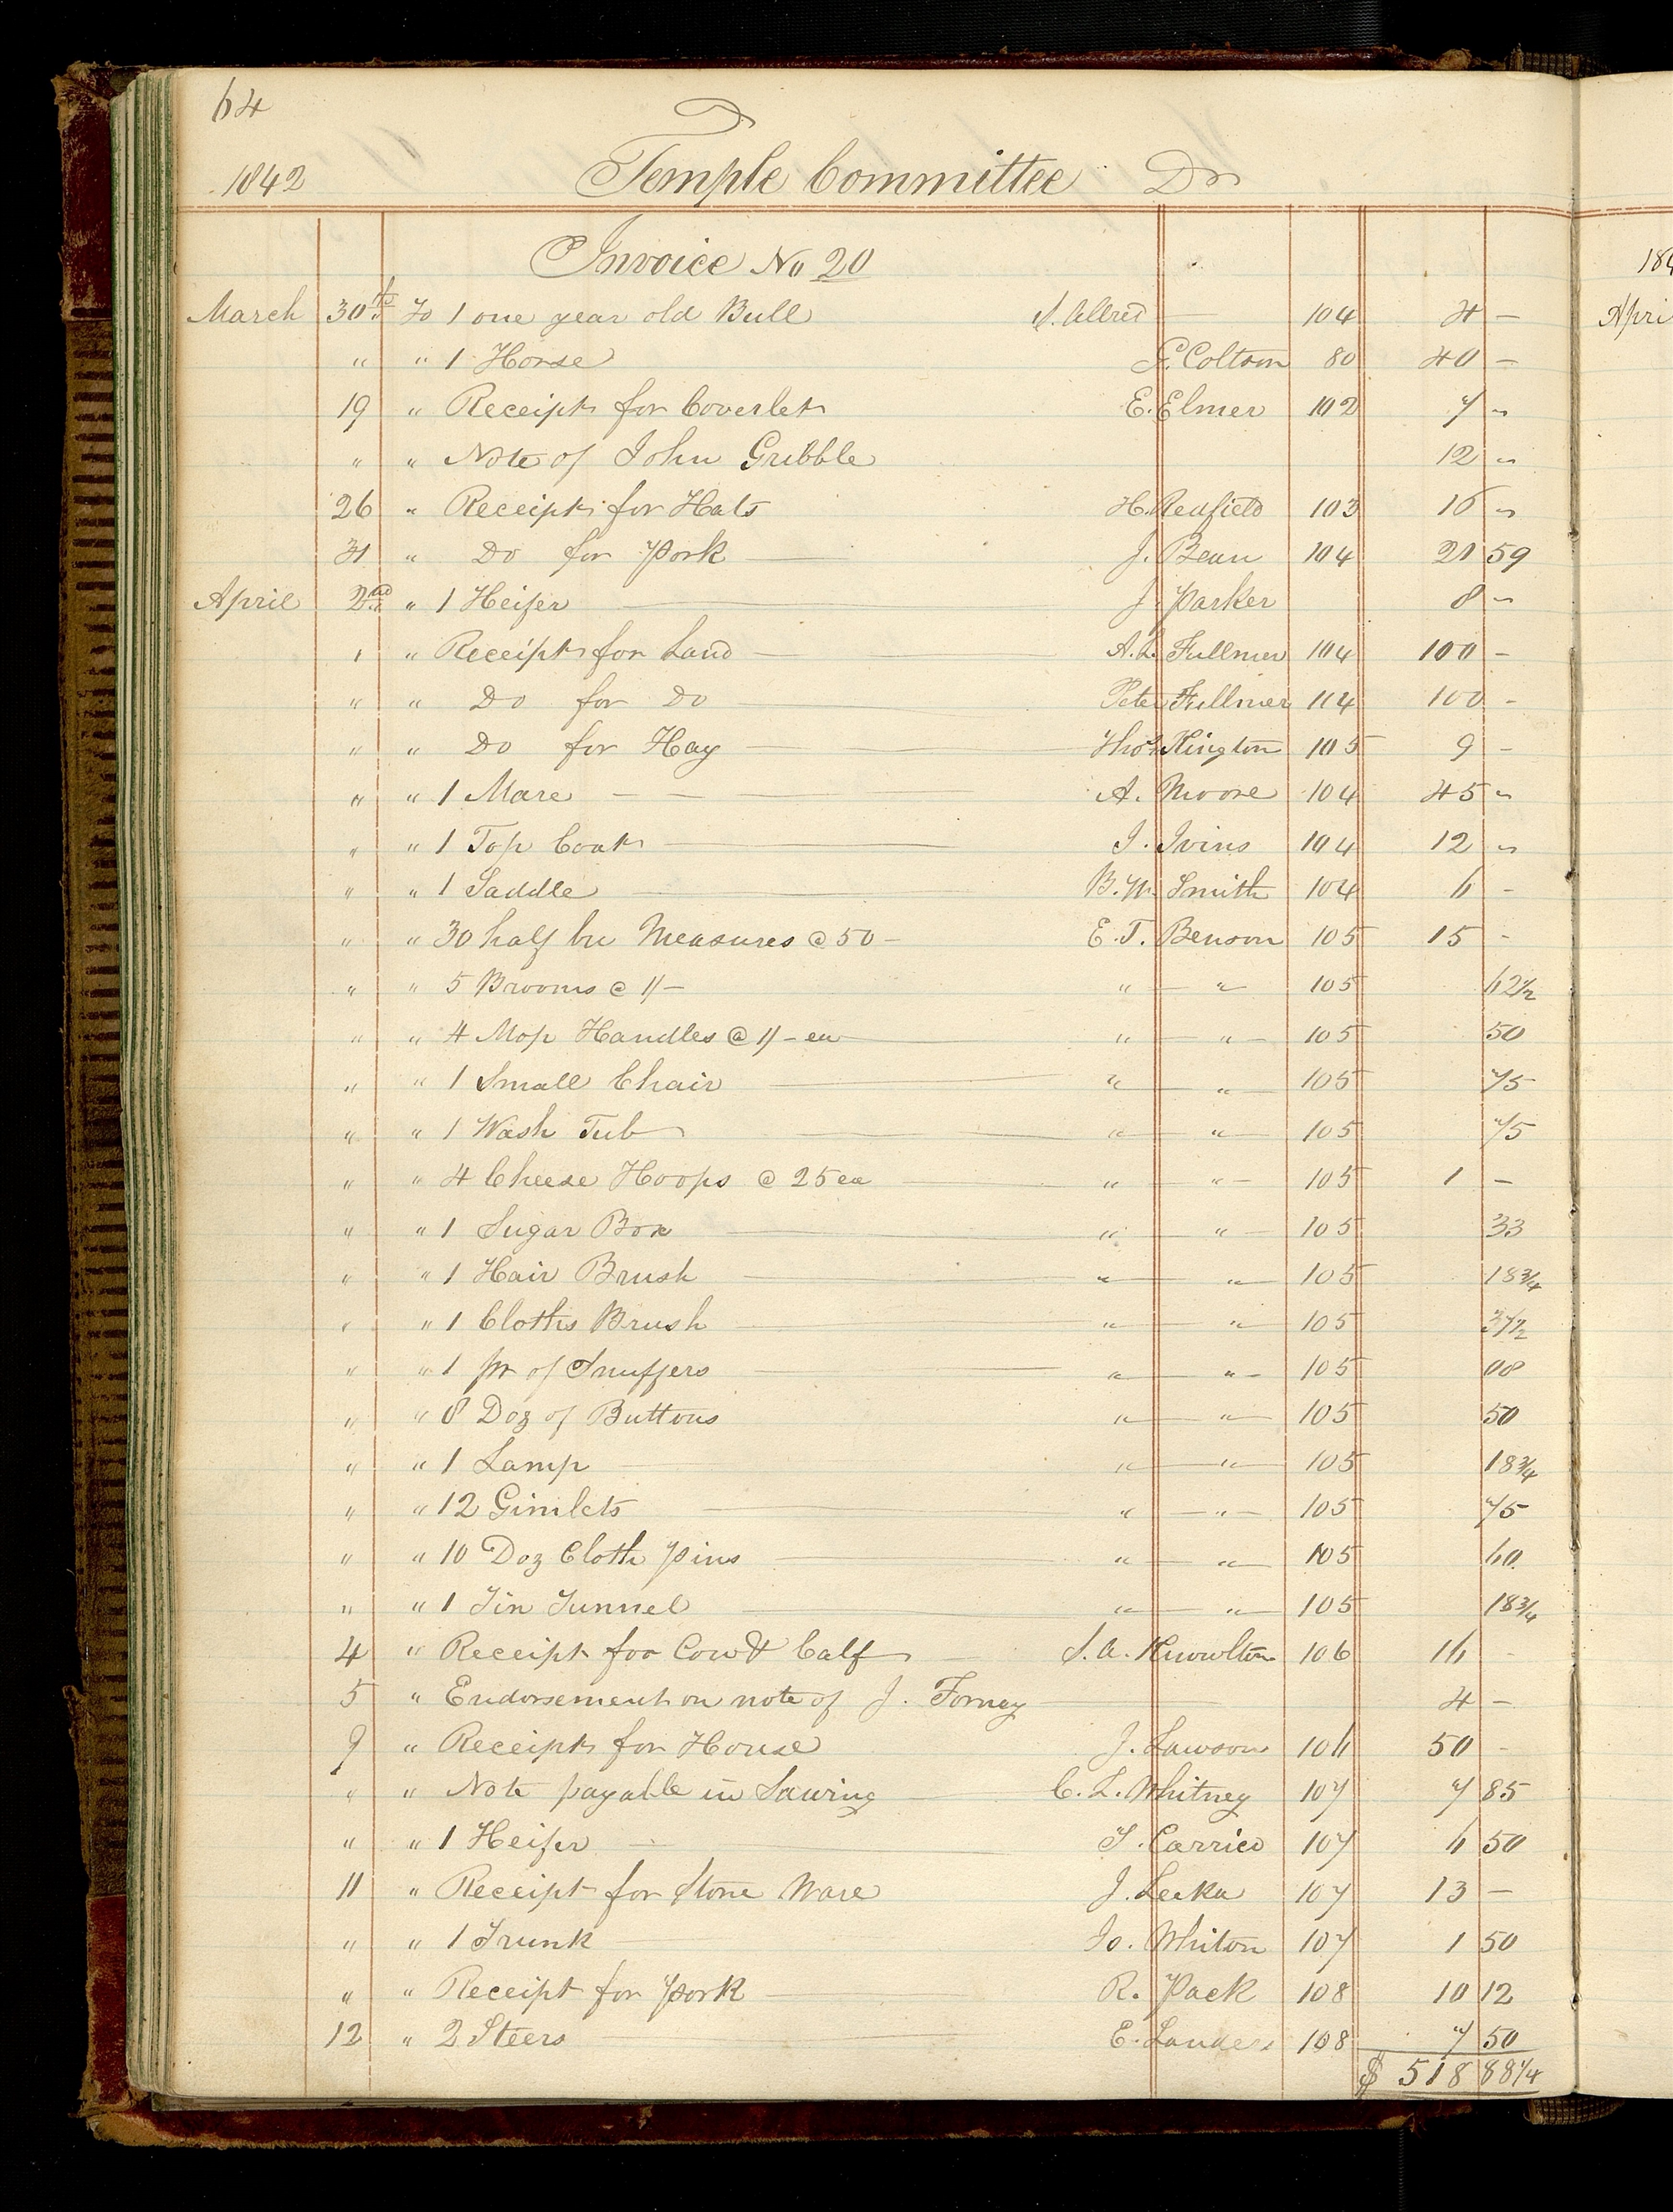 64
1842 Temple Committee Dr
Invoice No 20
March 30th To 1 one year old Bull J. Allred 104 4 –
" " 1 Horse G. Coltom 80 40 –
19 " Receipt for Coverlet E. Elmer 102 7 "
" " Note of John Gribble 12 "
26 " Receipt for Hats H. Redfield 103 16 "
31 " Do for Pork J. Bean 104 21 59
April 2nd " 1 Heifer J. Parker 8 "
" " Receipt for Land A.L. Fullmer 104 100 –
" " Do for Do Peter Fullmer 104 100 –
" " Do for Hay Thos Kington 105 9 –
" " 1 Mare A. Moore 104 45 "
" " 1 Top Coat J. Ivins 104 12 "
" " 1 Saddle B.W. Smith 104 6 –
" " 30 half bu Measures @ 50 – E. T. Benson 105 15 –
" " 5 Brooms @ 1/– " " 105 62½
" " 4 Mop Handles @ 1/– ea " " 105 50
" " 1 Small Chair " " 105 75
" " 1 Wash Tub " " 105 75
" " 4 Cheese Hoops @ 25 ea " " 105 1 –
" " 1 Sugar Box " " 105 33
" " 1 Hair Brush " " 105 18¾
" " 1 Cloths Brush " " 105 37½
" " 1 pr of Snuffers " " 105 08
" " 8 Doz of Buttons " " 105 50
" " 1 Lamp " " 105 18¾
" " 12 Gimlets " " 105 75
" " 10 Doz Cloth Pins " " 105 60
" " 1 Tin Tunnel " " 105 18¾
4 " Receipt for Cow & Calf S.A. Knowlton 106 16 –
5 " Endorsement on note of J. Forney 4 –
9 " Receipt for House J. Lawson 106 50 –
" " Note payable in Sawing C. L. Whitney 107 7 85
" " 1 Heifer T. Carrico 107 6 50
11 " Receipt for Stone Ware J. Leeka 107 13 –
" " 1 Trunk Jo. Whiton 107 1 50
" " Receipt for Pork R. Pack 108 10 12
12 " 2 Steers E. Landers 108 7 50
$ 518 88¼
184
Apri